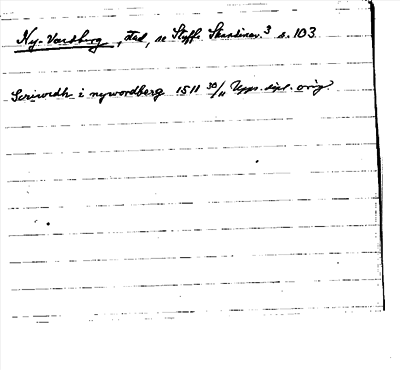 Ny-Vardberg, stad, se Styffe Skandinav.³ s. 103
Scriwedh i nywordberg 1511 30/11 Upps. dipl. orig